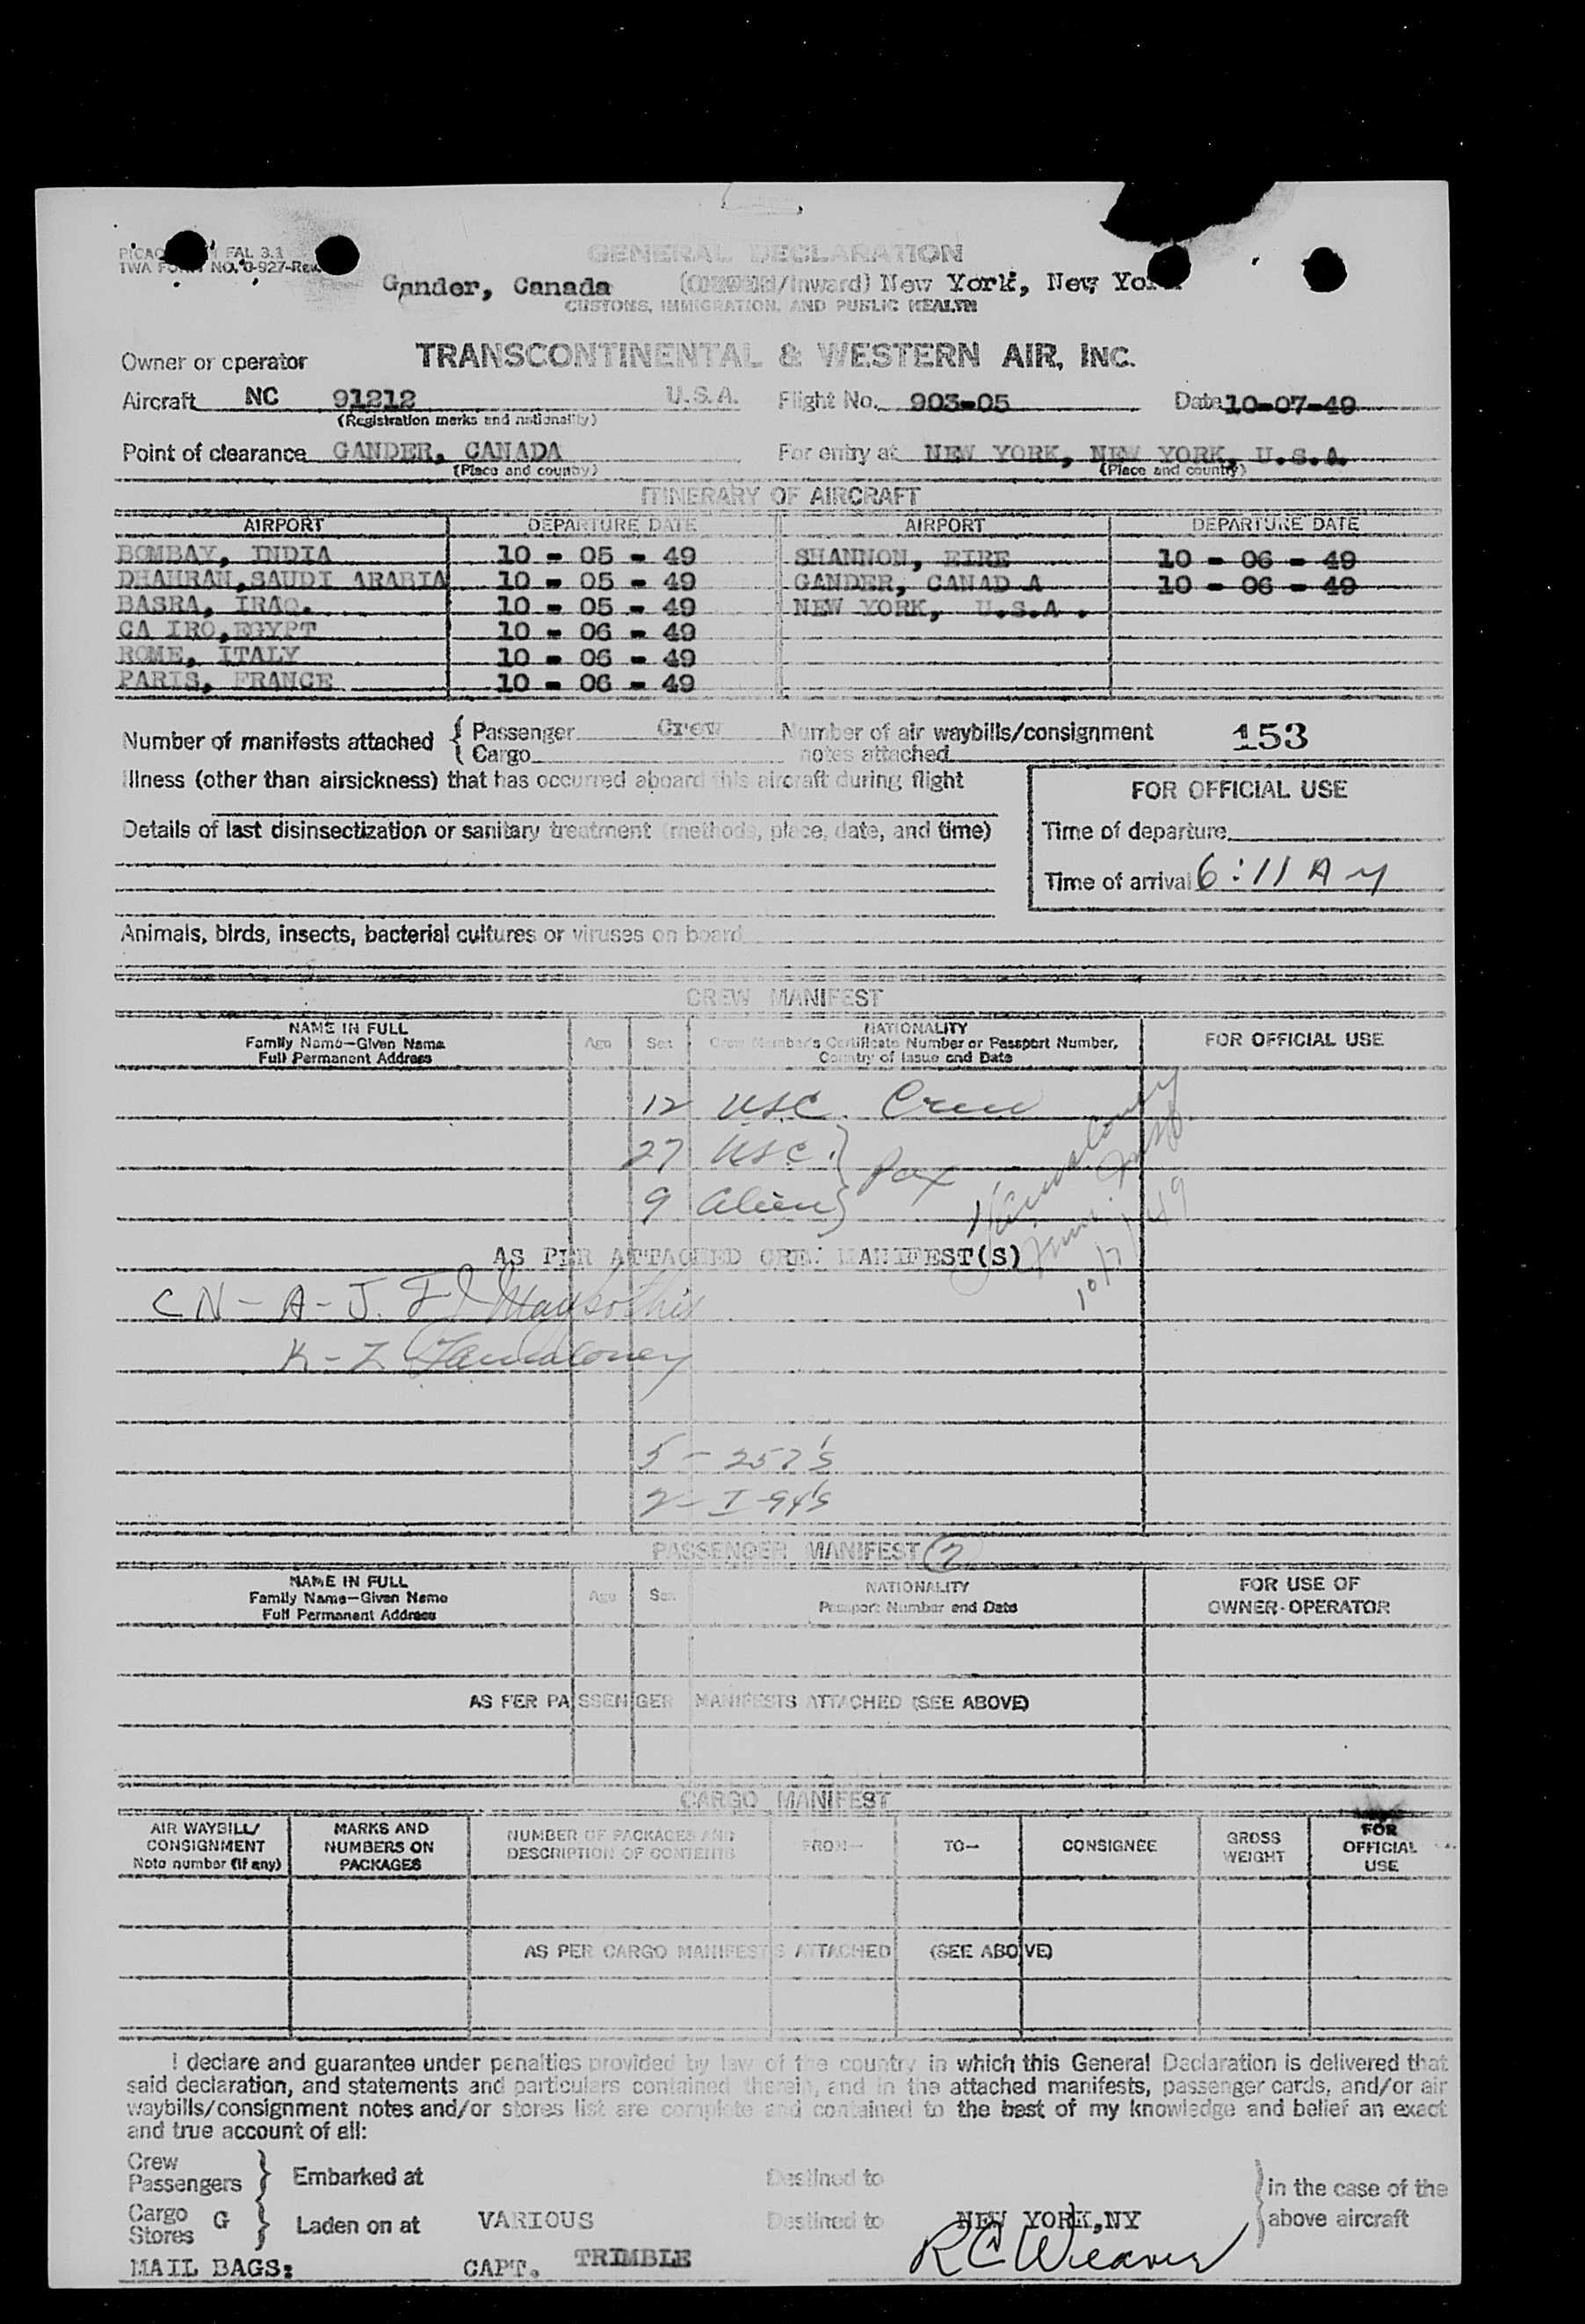 FAL 3.1
TWA FORM NO. 0-927-Rev.
GENERAL DECLARATION
Gander, Canada (/Inward) New York, New York
CUSTOMS, IMMIGRATION, AND PUBLIC HEALTH
Owner or operator TRANSCONTINENTAL & WESTERN AIR, INC.
Aircraft NC 91212 U.S.A. Flight No. 903-05 Date 10-07-49
(Registration marks and nationality)
Point of clearance GANDER, CANADA For entry at NEW YORK, NEW YORK, U.S.A.
(Place and country) (Place and country)
ITINERARY OF AIRCRAFT
AIRPORT DEPARTURE DATE AIRPORT DEPARTURE DATE
BOMBAY, INDIA 10 - 05 - 49 SHANNON, EIRE 10 - 06 - 49
DHAHRAN, SAUDI ARABIA 10 - 05 - 49 GANDER, CANAD A 10 - 06 - 49
BASRA, IRAQ. 10 - 05 - 49 NEW YORK, U.S.A.
CA IRO, EGYPT 10 - 06 - 49
ROME, ITALY 10 - 06 - 49
PARIS, FRANCE 10 - 06 - 49
Number of manifests attached { Passenger Crew Number of air waybills/consignment 153
Cargo notes attached
Illness (other than airsickness) that has occurred aboard this aircraft during flight
FOR OFFICIAL USE
Details of last disinsectization or sanitary treatment (methods, place, date, and time)
Time of departure
Time of arrival 6:11 AM
Animals, birds, insects, bacterial cultures or viruses on board
CREW MANIFEST
NAME IN FULL
Family Name—Given Name
Full Permanent Address
Age Sex NATIONALITY
Crew Member's Certificate Number or Passport Number,
Country of Issue and Date
FOR OFFICIAL USE
12 USC. Crew
27 USC. } Pax
9 Alien }
10/7/49
AS PER ATTACHED CREW MANIFEST(S)
CN - A - J.
K - Z
5 - 257's
2 - I-94's
PASSENGER MANIFEST (7)
NAME IN FULL
Family Name—Given Name
Full Permanent Address
Age Sex NATIONALITY
Passport Number and Date
FOR USE OF
OWNER-OPERATOR
AS PER PASSENGER MANIFESTS ATTACHED (SEE ABOVE)
CARGO MANIFEST
AIR WAYBILL/
CONSIGNMENT
Note number (if any)
MARKS AND
NUMBERS ON
PACKAGES
NUMBER OF PACKAGES AND
DESCRIPTION OF CONTENTS
FROM— TO— CONSIGNEE
GROSS
WEIGHT
FOR
OFFICIAL
USE
AS PER CARGO MANIFESTS ATTACHED (SEE ABOVE)
I declare and guarantee under penalties provided by law of the country in which this General Declaration is delivered that
said declaration, and statements and particulars contained therein, and in the attached manifests, passenger cards, and/or air
waybills/consignment notes and/or stores list are complete and contained to the best of my knowledge and belief an exact
and true account of all:
Crew
Passengers } Embarked at Destined to
Cargo G
Stores } Laden on at VARIOUS Destined to NEW YORK,NY
in the case of the
above aircraft
MAIL BAGS: CAPT. TRIMBLE R C Weaver